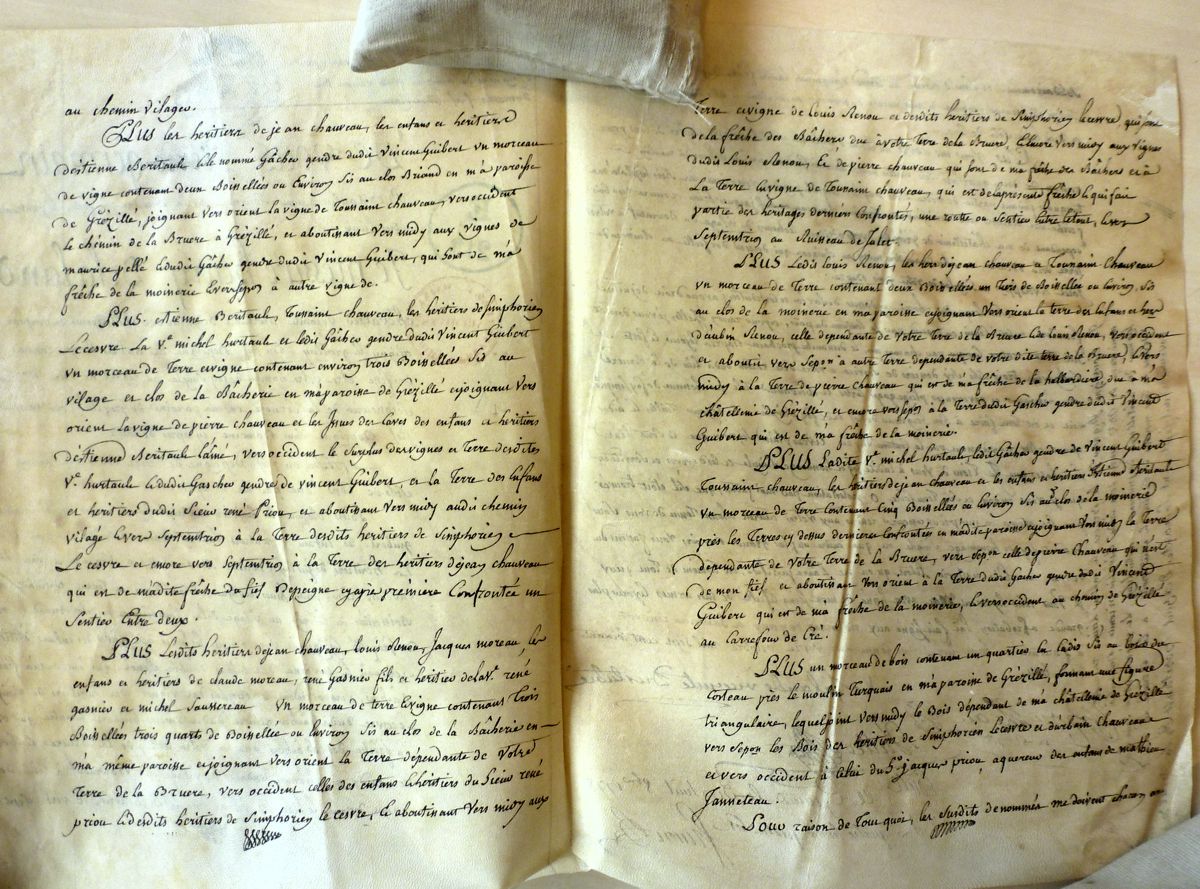 au chemin vilageo.
PLUS les heritiers de jean chauveau, les enfans et heritiers
d'estienne Beritault, Le nommé Gâcheo gendre dudit Vincent Guibert un morceau
de vigne contenant deux Boissellées ou Environ Sis au clos Briand en ma paroisse
de Grézillé, joignant vers orient la vigne de Toussaint chauveau, vers occident
le chemin de la Bruere à Grézillé, et aboutissant vers midy aux vignes de
maurice pellé & dudit Gâcheo gendre dudit Vincent Guibert, qui sont de ma
frêche de la moinerie Et vers sepon à autre vigne de.
PLUS. estienne Beritault, Toussaint chauveau, les heritiers de Simphorien
Lecesvre La Ve. michel hurtault et ledit Gâcheo gendre dudit Vincent Guibert
un morceau de Terre et vigne contenant environ trois Boissellées Sis au
vilage et clos de la Bâcherie en ma paroise de Grézillé et joignant vers
orient la vigne de pierre chauveau et les Issues des Caves des enfans et heritiers
d'Estienne Beritault L'aîné, vers occident le Surplus des vignes et Terre desdites
Ve. hurtault & dudit Gascheo gendre de vincent Guibert, et la Terre des Enfans
et heritiers dudit Sieur rené Priou, et aboutissant vers midy audit chemin
vilagé & vers Septentrion à la Terre desdits heritiers de Simphorien
Lecesvre et encore vers Septentrion à la Terre des heritiers de jean chauveau
qui est de madite frêche du fief Depeigne cy apré premiere Confrontée un
Sentier Entre deux.
PLUS Lesdits heritiers de jean chauveau, louis Renou, Jacques moreau, les
enfans et heritiers de claude moreau, rené Gasnier fils et heritier de la Ve. rené
gasnier et michel Saussereau un morceau de terre & vigne contenant Trois
Boissellées trois quarts de Boissellée ou Environ Sis au clos de la Bâcherie en
ma même paroisse et joignant vers orient la Terre dépendante de Votre
Terre de la Bruere, vers occident celles des enfans & héritiers du Sieur rené
priou & desdits heritiers de Simphorien lecesvre, & aboutissant vers midy aux
Terre et vigne de Louis Renou et desdits heritiers de Simphorien Lecesvre qui sont
de la frêche des Bâchers due à votre Terre de la Bruere, Et vers midy aux vignes
dudit Louis Renou, & de pierre chauveau qui sont de ma frêche des Bâchers et à
La Terre & vigne de Toussaint chauveau, qui est de la présente frêche & qui fait
partie des heritages derniers Confrontés, une routte ou Sentier Entre le tout, & vers
Septentrion au Ruisseau de Jalet.
PLUS Ledit Louis Renou, les hers. de jean chauveau et Toussaint Chauveau
un morceau de Terre contenant deux Boissellées un Tiers de Boissellée ou Environ Sis
au clos de la moinerie en ma paroisse et joignant vers orient la terre des Enfans et hers
d'aubin Renou, celle dependante de Votre Terre de la Bruere & de louis Renou, vers occident
et aboutit vers Sepon. à autre Terre dependante de votre dite terre de la Bruere, & vers
midy à la Terre de pierre chauveau qui est de ma frêche de la hallardiere, due à ma
châtellenie de Grézillé, et encore vers sepon à la Terre dudit Gascheo gendre dudit Vincent
Guibert qui est de ma frêche de la moinerie.
PLUS Ladite Ve. michel hurtault, ledit Gâcheo gendre de Vincent Guibert
Toussaint chauveau, les heritiers de jean chauveau et les enfans et heritiers d'Estienne Beritault
un morceau de Terre contenant Cinq Boissellées ou Environ Sis au clos de la moinerie
près les Terres cy dessus dernieres Confrontées en madite paroisse et joignant vers midy la Terre
dependante de Votre Terre de la Bruere, vers Sepon celle de pierre Chauveau qui n'est
de mon fief et aboutissant vers orient à la Terre dudit Gâcheo gendre dudit Vincent
Guibert qui est de ma frêche de la moinerie, & vers occident au chemin de Grézillé
au Carrefour de Cré.
PLUS un morceau de bois contenant un quartier en ladis Sis au bois du
Corteau près le moulin Turquais en ma paroise de Grézillé, formant une figure
triangulaire, lequel joint vers midy le Bois dépendant de ma châtellenie de Grézillé
vers Sepon les Bois des heritiers de Simphorien Lecesvre et d'urbain Chauveau
et vers occident à Celui du Sr. jacques priou aquereur des enfans de mathieu
Janneteau.
Pour raison de Tout quoi, les Susdits denommés me doivent chacun an